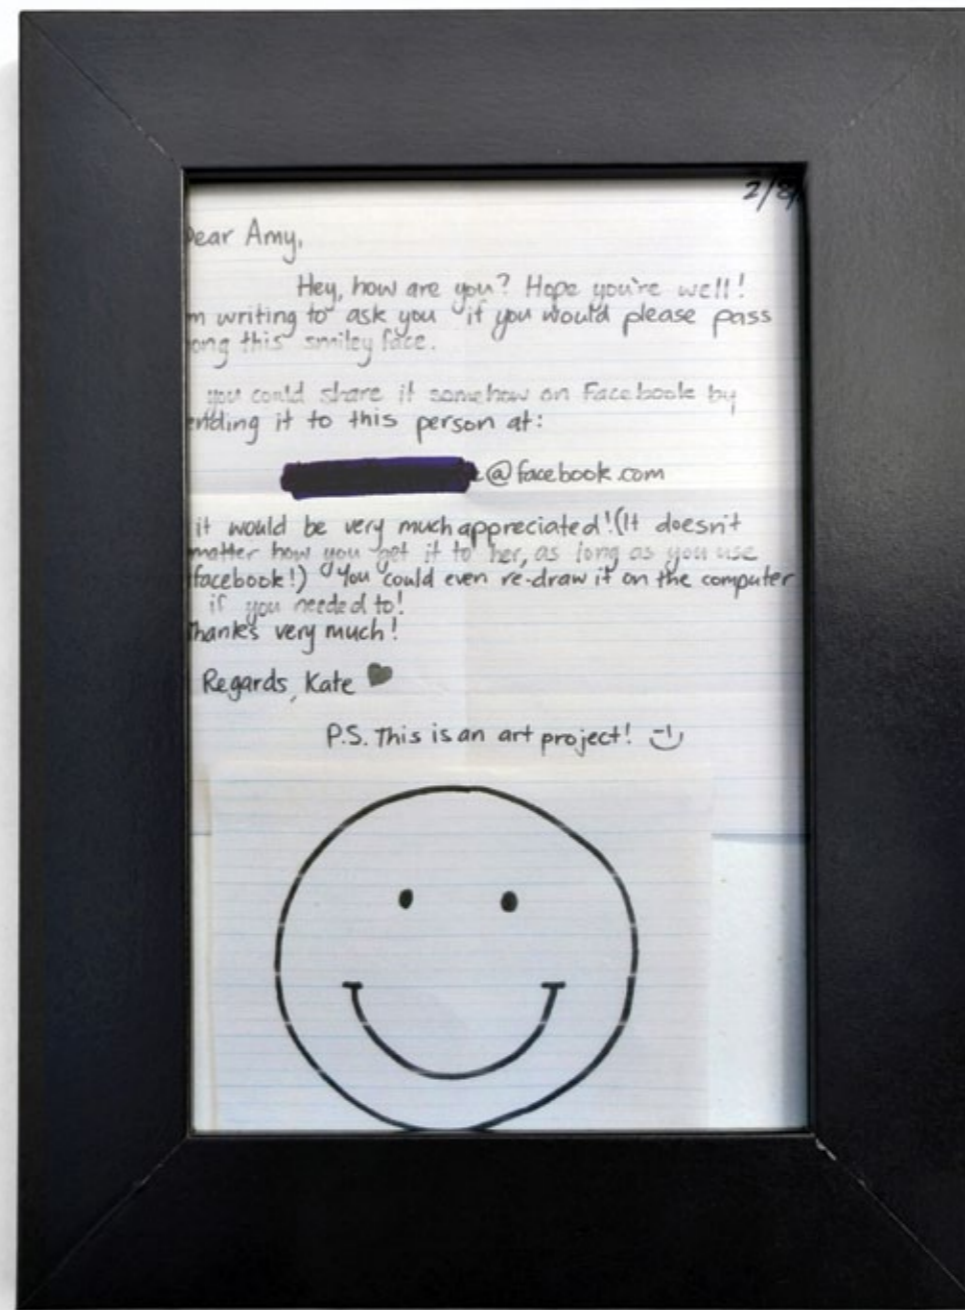 2/8/
Dear Amy,
Hey, how are you? Hope you're well!
m writing to ask you if you would please pass
ong this smiley face.
you could share it somehow on Facebook by
ending it to this person at:
@facebook.com
it would be very much appreciated! (It doesn't
matter how you get it to her, as long as you use
facebook!) You could even re-draw it on the computer
if you needed to!
Thanks very much!
Regards, Kate ♥
P.S. This is an art project! :)